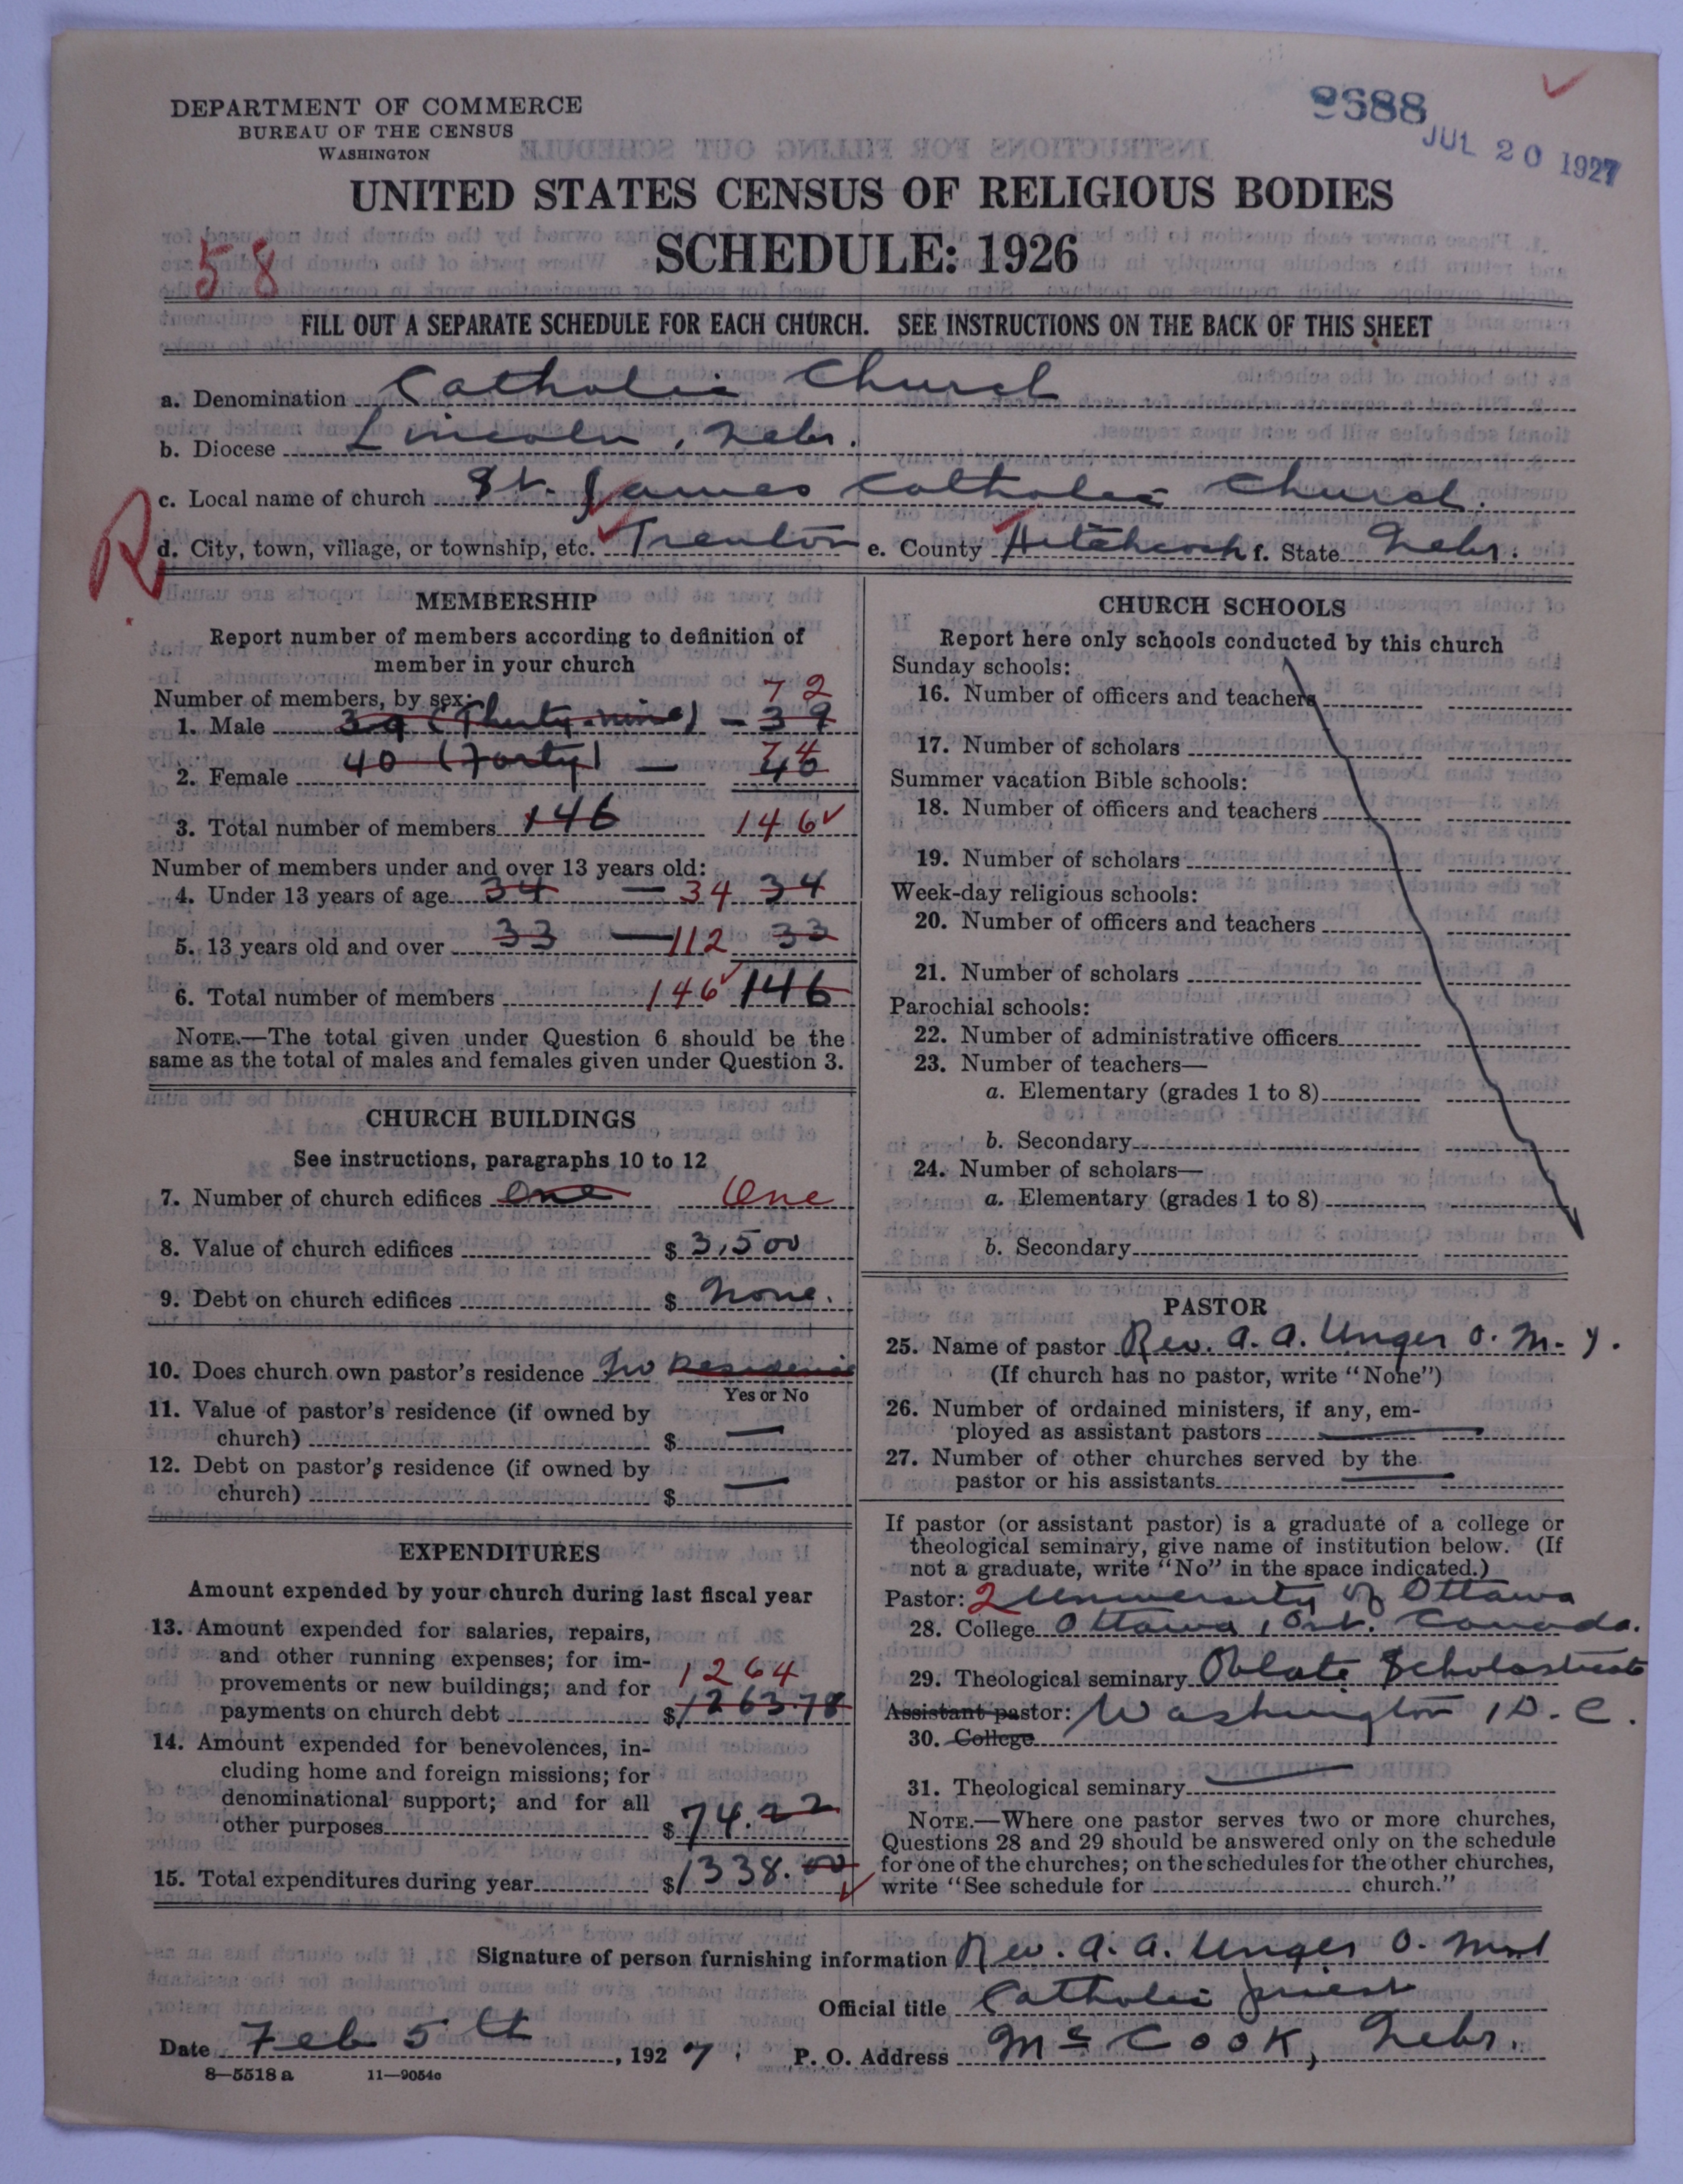 DEPARTMENT OF COMMERCE
BUREAU OF THE CENSUS
WASHINGTON
JUL 20 1927
UNITED STATES CENSUS OF RELIGIOUS BODIES
SCHEDULE: 1926
58
FILL OUT A SEPARATE SCHEDULE FOR EACH CHURCH. SEE INSTRUCTIONS ON THE BACK OF THIS SHEET
a. Denomination Catholic Church
b. Diocese Lincoln, Nebr.
c. Local name of church St. James Catholic Church.
R
d. City, town, village, or township, etc. Trenton e. County Hitchcock f. State Nebr.
MEMBERSHIP
Report number of members according to definition of
member in your church
Number of members, by sex: 72
1. Male 39 (Thirty-nine) - 39
74
2. Female 40 (Forty) - 40
3. Total number of members 146 146
Number of members under and over 13 years old:
4. Under 13 years of age 34 - 34 34
5. 13 years old and over 33 - 112 33
6. Total number of members 146 146
NOTE.—The total given under Question 6 should be the
same as the total of males and females given under Question 3.
CHURCH BUILDINGS
See instructions, paragraphs 10 to 12
7. Number of church edifices One One
8. Value of church edifices $ 3,500
9. Debt on church edifices $ None.
10. Does church own pastor's residence No Residence
Yes or No
11. Value of pastor's residence (if owned by
church) $ —
12. Debt on pastor's residence (if owned by
church) $ —
EXPENDITURES
Amount expended by your church during last fiscal year
13. Amount expended for salaries, repairs,
and other running expenses; for im-
provements or new buildings; and for 1264
payments on church debt $ 1263.78
14. Amount expended for benevolences, in-
cluding home and foreign missions; for
denominational support; and for all
other purposes $ 74.22
15. Total expenditures during year $ 1338.00
CHURCH SCHOOLS
Report here only schools conducted by this church
Sunday schools:
16. Number of officers and teachers
17. Number of scholars
Summer vacation Bible schools:
18. Number of officers and teachers
19. Number of scholars
Week-day religious schools:
20. Number of officers and teachers
21. Number of scholars
Parochial schools:
22. Number of administrative officers
23. Number of teachers—
a. Elementary (grades 1 to 8)
b. Secondary
24. Number of scholars—
a. Elementary (grades 1 to 8)
b. Secondary
PASTOR
25. Name of pastor Rev. A. A. Unger O. M. I.
(If church has no pastor, write "None")
26. Number of ordained ministers, if any, em-
ployed as assistant pastors —
27. Number of other churches served by the
pastor or his assistants —
If pastor (or assistant pastor) is a graduate of a college or
theological seminary, give name of institution below. (If
not a graduate, write "No" in the space indicated.)
Pastor: 2 University of Ottawa
28. College Ottawa, Ont. Canada.
29. Theological seminary Oblate Scholasticate
Assistant pastor: Washington, D. C.
30. College
31. Theological seminary —
NOTE.—Where one pastor serves two or more churches,
Questions 28 and 29 should be answered only on the schedule
for one of the churches; on the schedules for the other churches,
write "See schedule for church."
Signature of person furnishing information Rev. A. A. Unger O. M. I
Official title Catholic Priest
Date Feb 5th, 1927. P. O. Address McCook, Nebr.
8—5518 a 11—9054c